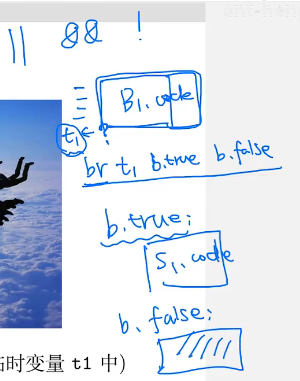 || && !
B₁.code
t₁ ← ?
br t₁ b.true b.false
b.true:
S₁.code
b.false:
临时变量 t1 中)